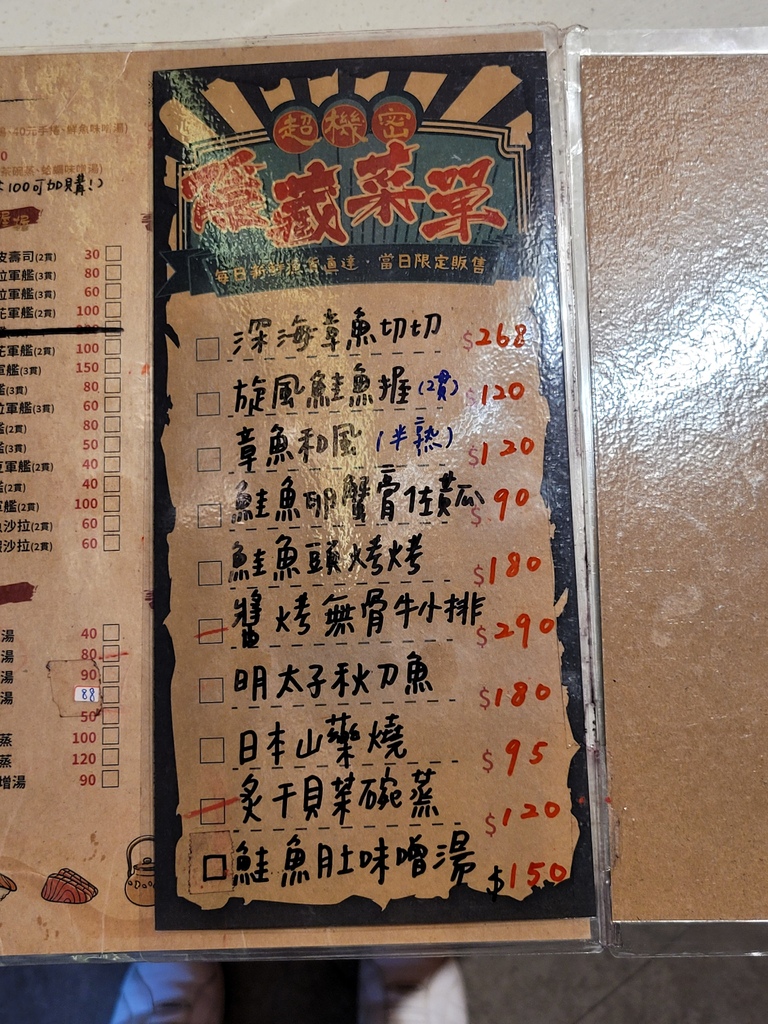 40元手捲、鮮魚味噌湯)
100可加購!)
皮壽司(2貫) 30
軍艦(3貫) 80
軍艦(3貫) 60
軍艦(2貫) 100
軍艦(2貫) 100
軍艦(3貫) 150
艦(3貫) 80
軍艦(3貫) 60
艦(2貫) 80
艦(3貫) 50
軍艦(2貫) 40
艦(2貫) 40
軍艦(2貫) 100
沙拉(2貫) 60
沙拉(2貫) 60
湯 40
湯 80
湯 90
湯 88
50
蒸 100
蒸 120
增湯 90
超機密
隱藏菜單
每日新鮮漁貨直達・當日限定販售
深海章魚切切 $268
旋風鮭魚握(2貫) $120
章魚和風(半熟) $120
鮭魚卵蟹膏佐黃瓜 $90
鮭魚頭烤烤 $180
醬烤無骨牛小排 $290
明太子秋刀魚 $180
日本山藥燒 $95
炙干貝茶碗蒸 $120
鮭魚肚味噌湯 $150